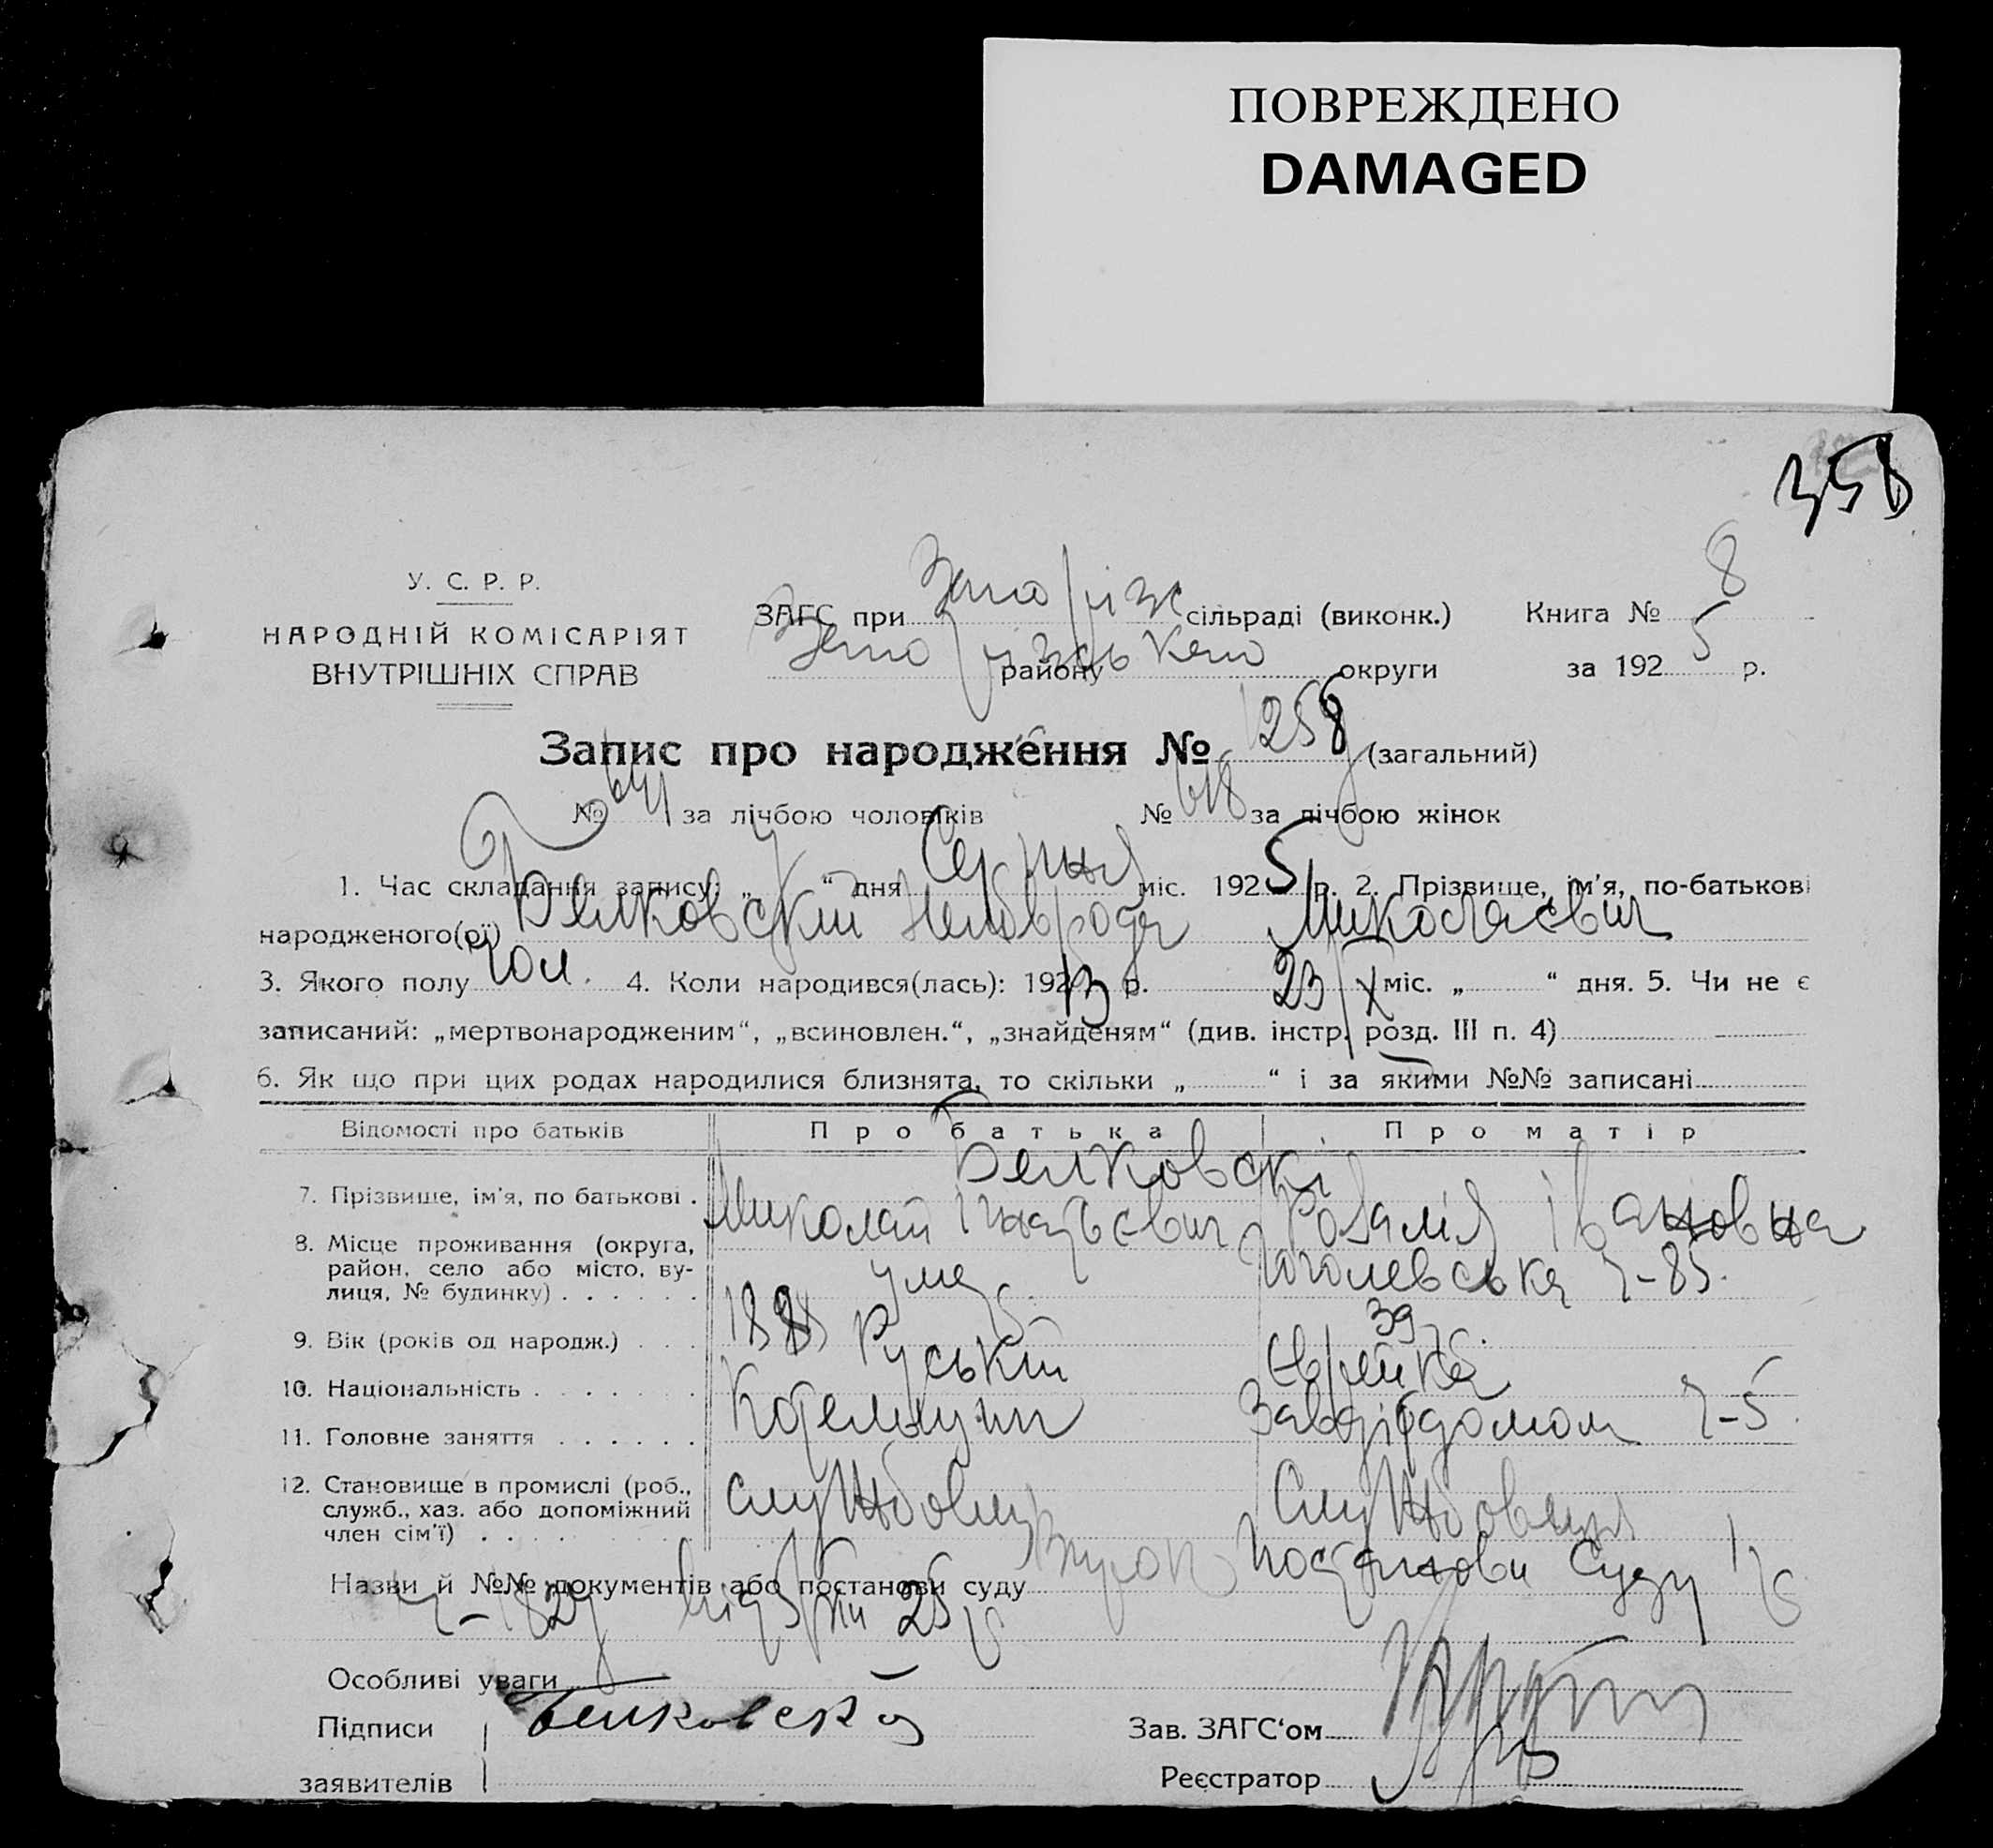 ПОВРЕЖДЕНО
DAMAGED
358
У. С. Р. Р.
НАРОДНІЙ КОМІСАРІЯТ
ВНУТРІШНІХ СПРАВ
ЗАГС при Запоріж сільраді (виконк.) Книга № 8
Запорізького району округи за 1925 р.
Запис про народження № 1258 (загальний)
№ 641 за лічбою чоловіків № 618 за лічбою жінок
1. Час складання запису: „ 7 “ дня Серпня міс. 1925 р. 2. Прізвище, ім'я, по-батькові
народженого(ої) Белковський Миколаєвич
3. Якого полу Чол. 4. Коли народився(лась): 1923 р. 23/X міс. „ “ дня. 5. Чи не є
записаний: „мертвонародженим“, „всиновлен.“, „знайденям“ (див. інстр. розд. III п. 4)
6. Як що при цих родах народилися близнята, то скільки „ “ і за якими №№ записані
Відомості про батьків Про батька Про матір
Белковскі
7. Прізвище, ім'я, по батькові . Миколай Ігнатьевич Розалія Івановна
8. Місце проживання (округа, район, село або місто, вулиця, № будинку) . . . . . . Гоголевська ч-85.
9. Вік (років од народж.) . . . 39
10. Національність . . . . . . . Руській Єврейка
11. Головне заняття . . . . . . Ч-5.
12. Становище в промислі (роб., служб., хаз. або допоміжний член сім'ї) . . . . Службовец Службовиця
Назви й №№ документів або постанови суду постанови Суду
від 25
Особливі уваги
Підписи Белковский Зав. ЗАГС'ом
заявителів Реєстратор